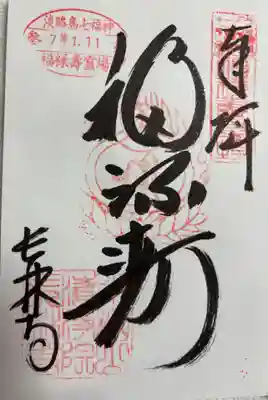 奉拝
福禄寿
淡路島七福神
参 7年1.11
福禄寿霊場
長林寺